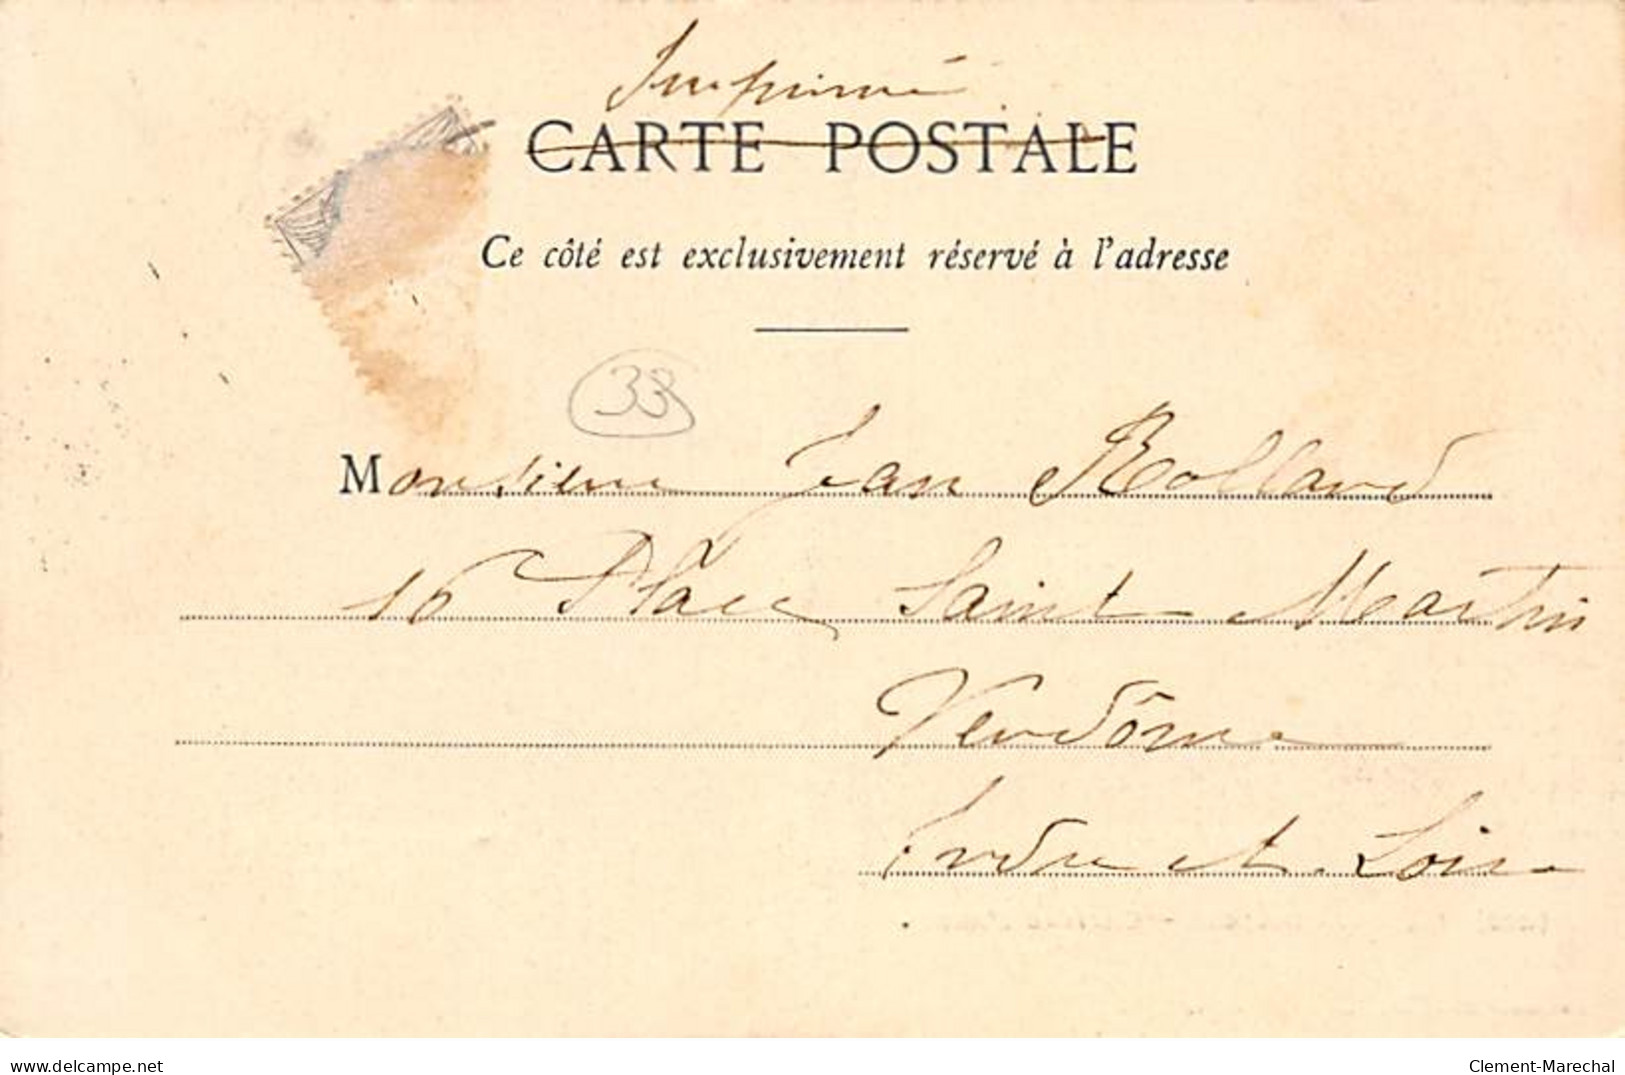 Imprimé
CARTE POSTALE
Ce côté est exclusivement réservé à l'adresse
33
Monsieur Jean Rolland
16 Place Saint Martin
Vendôme
Indre et Loire
delcampe.net
Clement-Marechal